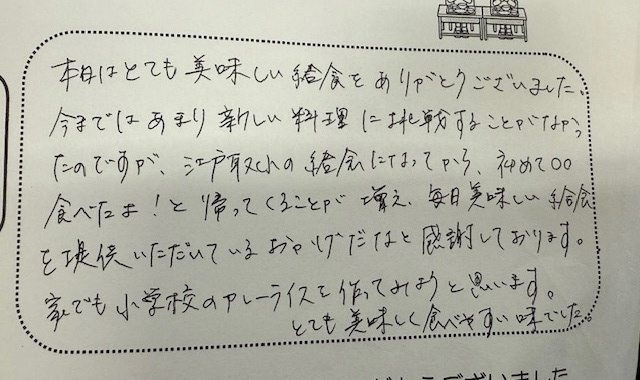 本日はとても美味しい給食をありがとうございました。
今まではあまり新しい料理に挑戦することがなかっ
たのですが、江戸取の給食になってから、初めて○○
食べたよ!と帰ってくることが増え、毎日美味しい給食
を提供いただいているおかげだなと感謝しております。
家でも小学校のカレーライスを作ってみようと思います。
とても美味しく食べやすい味でした。
うございました